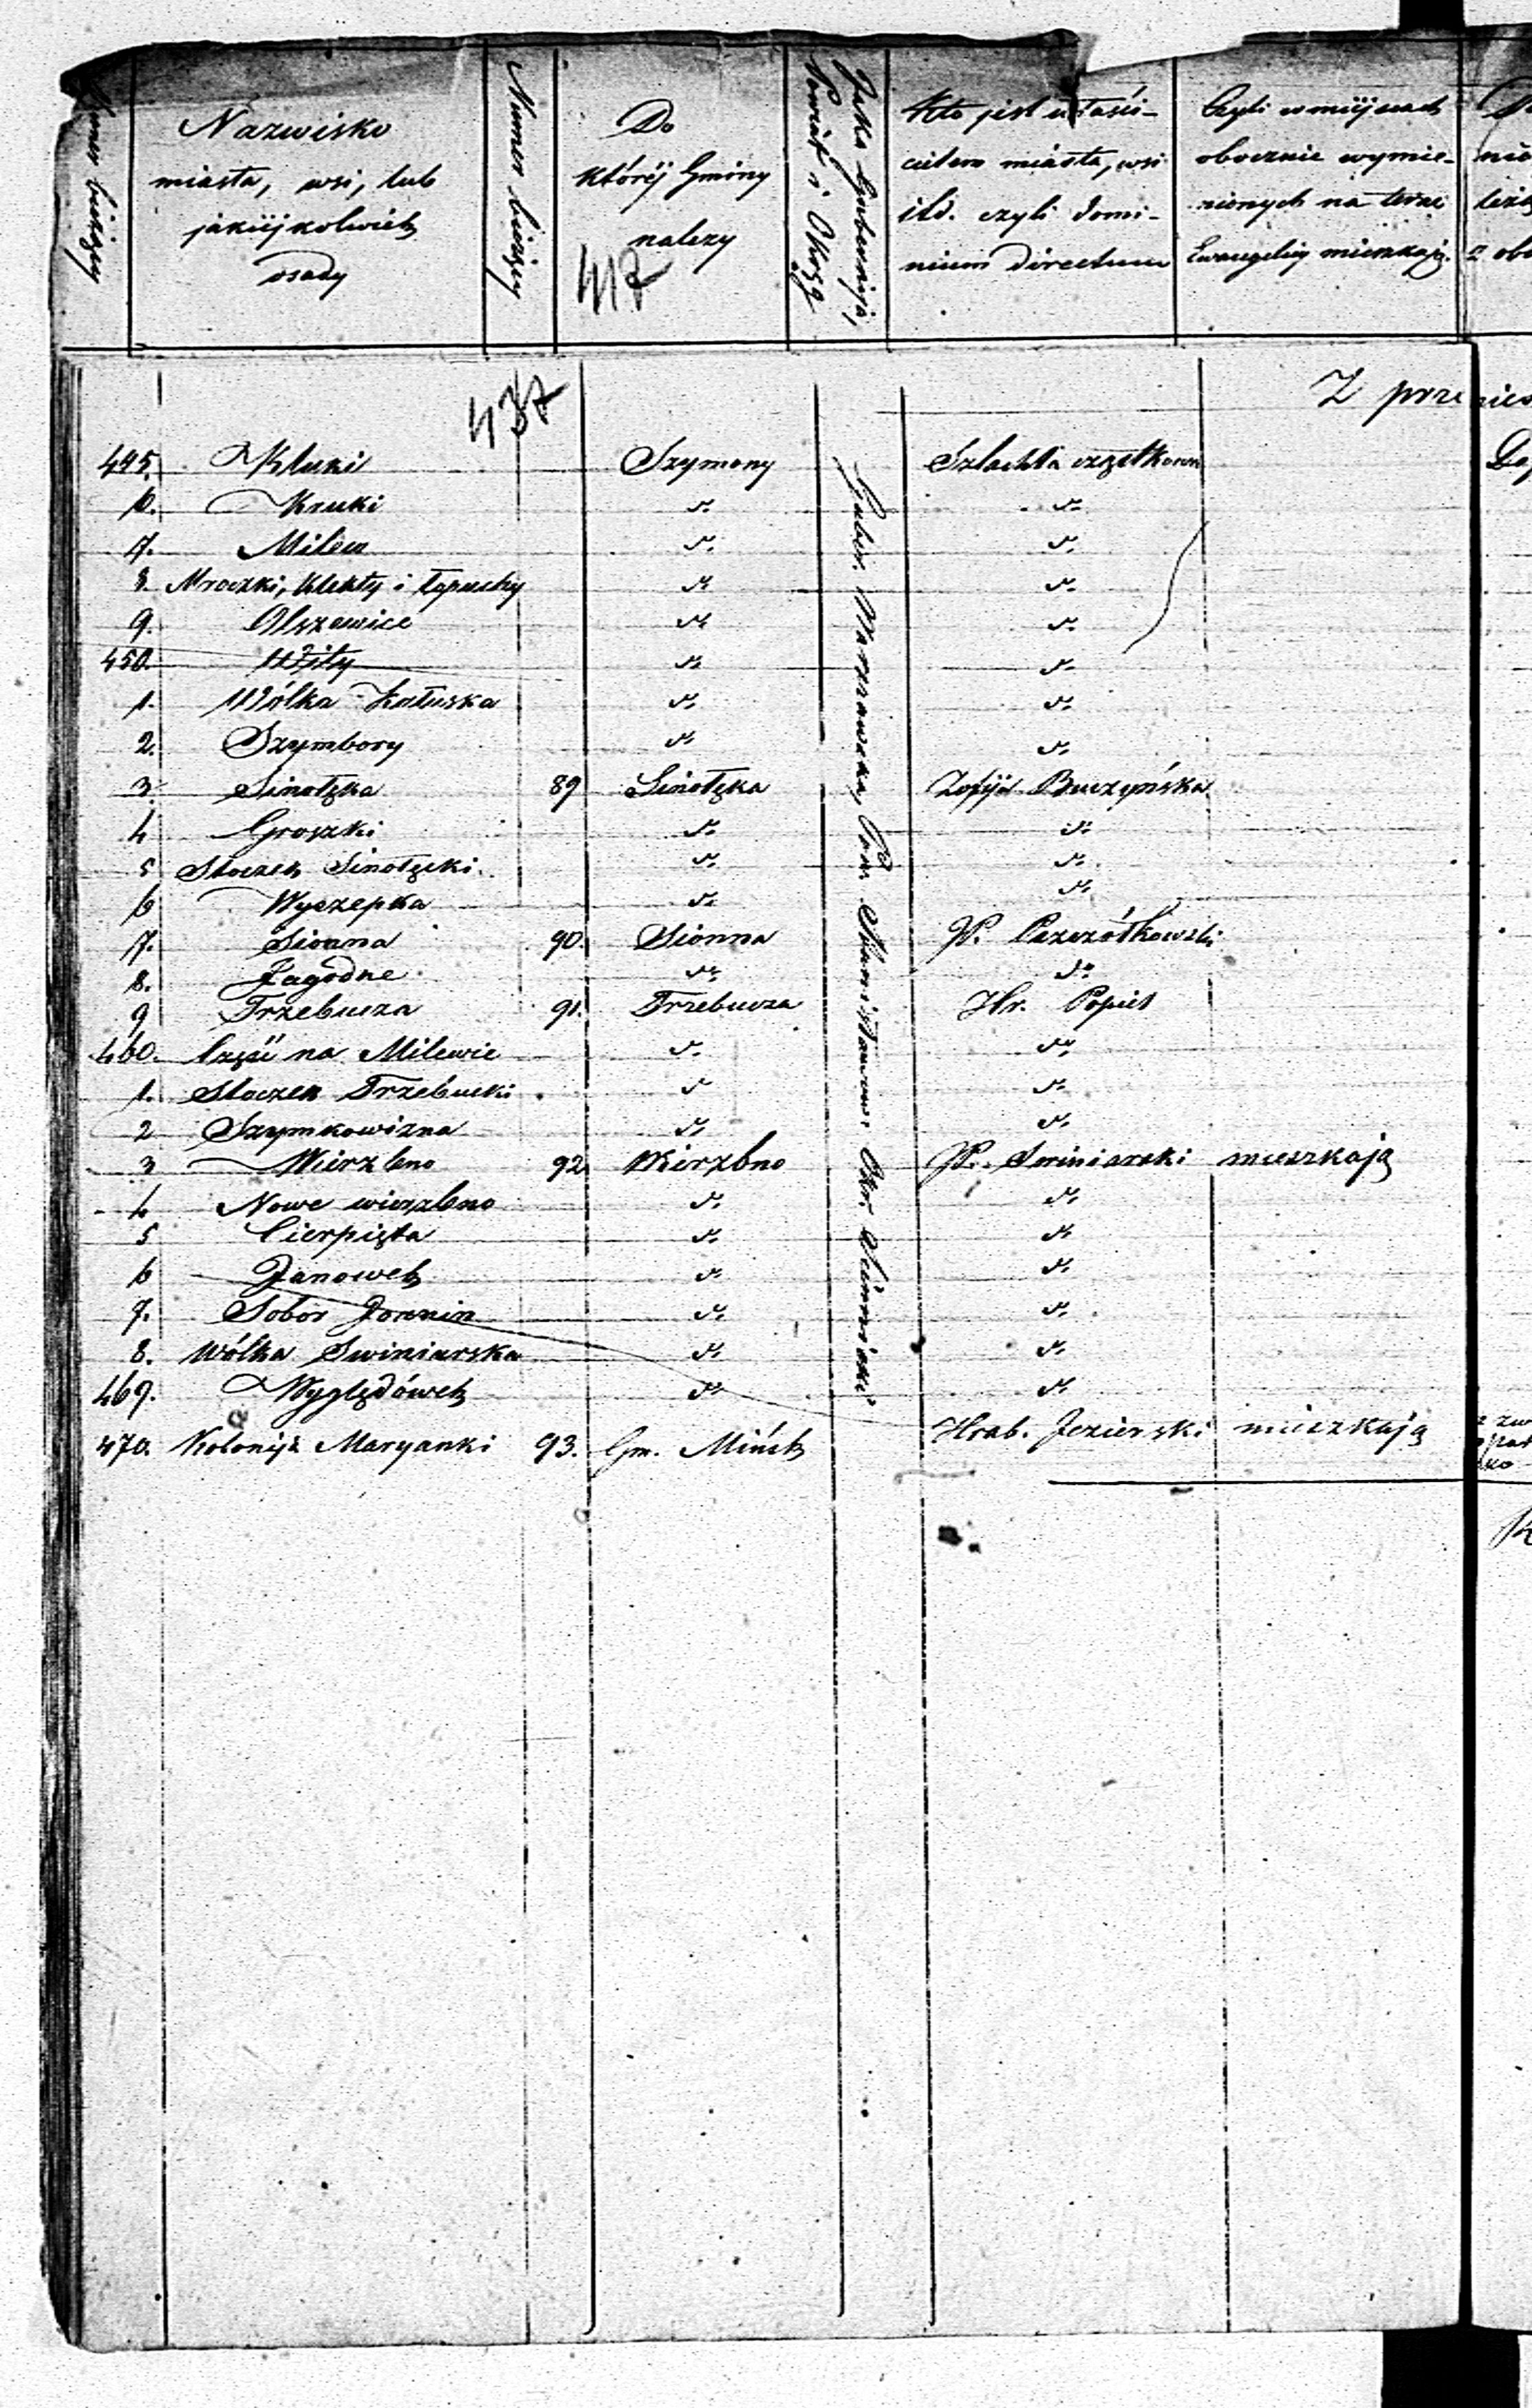 Numer bieżący
Nazwisko
miasta, wsi, lub
jakiéjkolwiek
osady
Numer bieżący
Do
któréj Gminy
należy
417
Jaka Gubernija,
Powiat i Okrąg
Kto jest właści-
cielem miasta, wsi
itd. czyli domi-
nium directum
Czyli w miéjscach
obocznie wymie-
nionych na teraz
Ewangelicy mieszkają.
437
Z przenies
445. Kluki Szymony Szlachta cząstkowa
6. Kruki d. d.
7. Milew d. d.
8. Mroczki, Klekty i Łopuchy d. d.
9. Olszewice d. d.
450. Wity d. d.
1. Wólka Kałuska d. d.
2. Szymbory d. d.
3. Sinołęka 89 Sinołęka Zofija Buczyńska
4 Groszki d. d.
5 Stoczek Sinołęcki d. d.
6 Wyczepka d. d.
7. Sionna 90. Sionna W. Pszczółkowski
8. Jagodne d. d.
9 Trzebucza 91. Trzebucza Hr. Popiel
460. Część na Milewie d. d.
1. Stoczek Trzebucki d. d.
2 Szymkowizna d. d.
3 Wierzbno 92 Wierzbno W. Swiniarski mieszkają
4 Nowe wierzbno d. d.
5 Cierpięta d. d.
6 Janowek d. d.
7. Sobor Jornin d. d.
8. Wólka Swiniarska d. d.
469. Wyględówek d. d.
470. Kolonija Maryanki 93. Gm. Mińsk Hrab. Jezierski mieszkają
Guber. Warszawska, Pow. Stanisławow. Okr. Siennicki